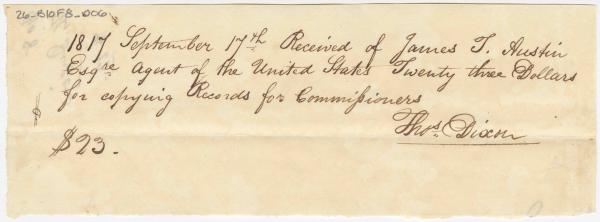 26-B10F8-006
1817 September 17th Received of James T. Austin
Esqre Agent of the United States Twenty three Dollars
for copying Records for Commissioners
Thos. Dixon
$23.